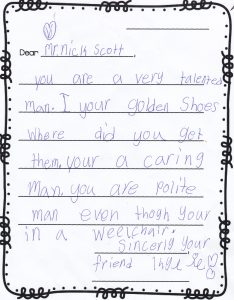 Dear Mr. Nick Scott,
you are a very talented
man. I your golden Shoes
where did you get
them, your a caring
Man, you are polite
man even thogh your
in a weelchair.
Sincerly your
friend